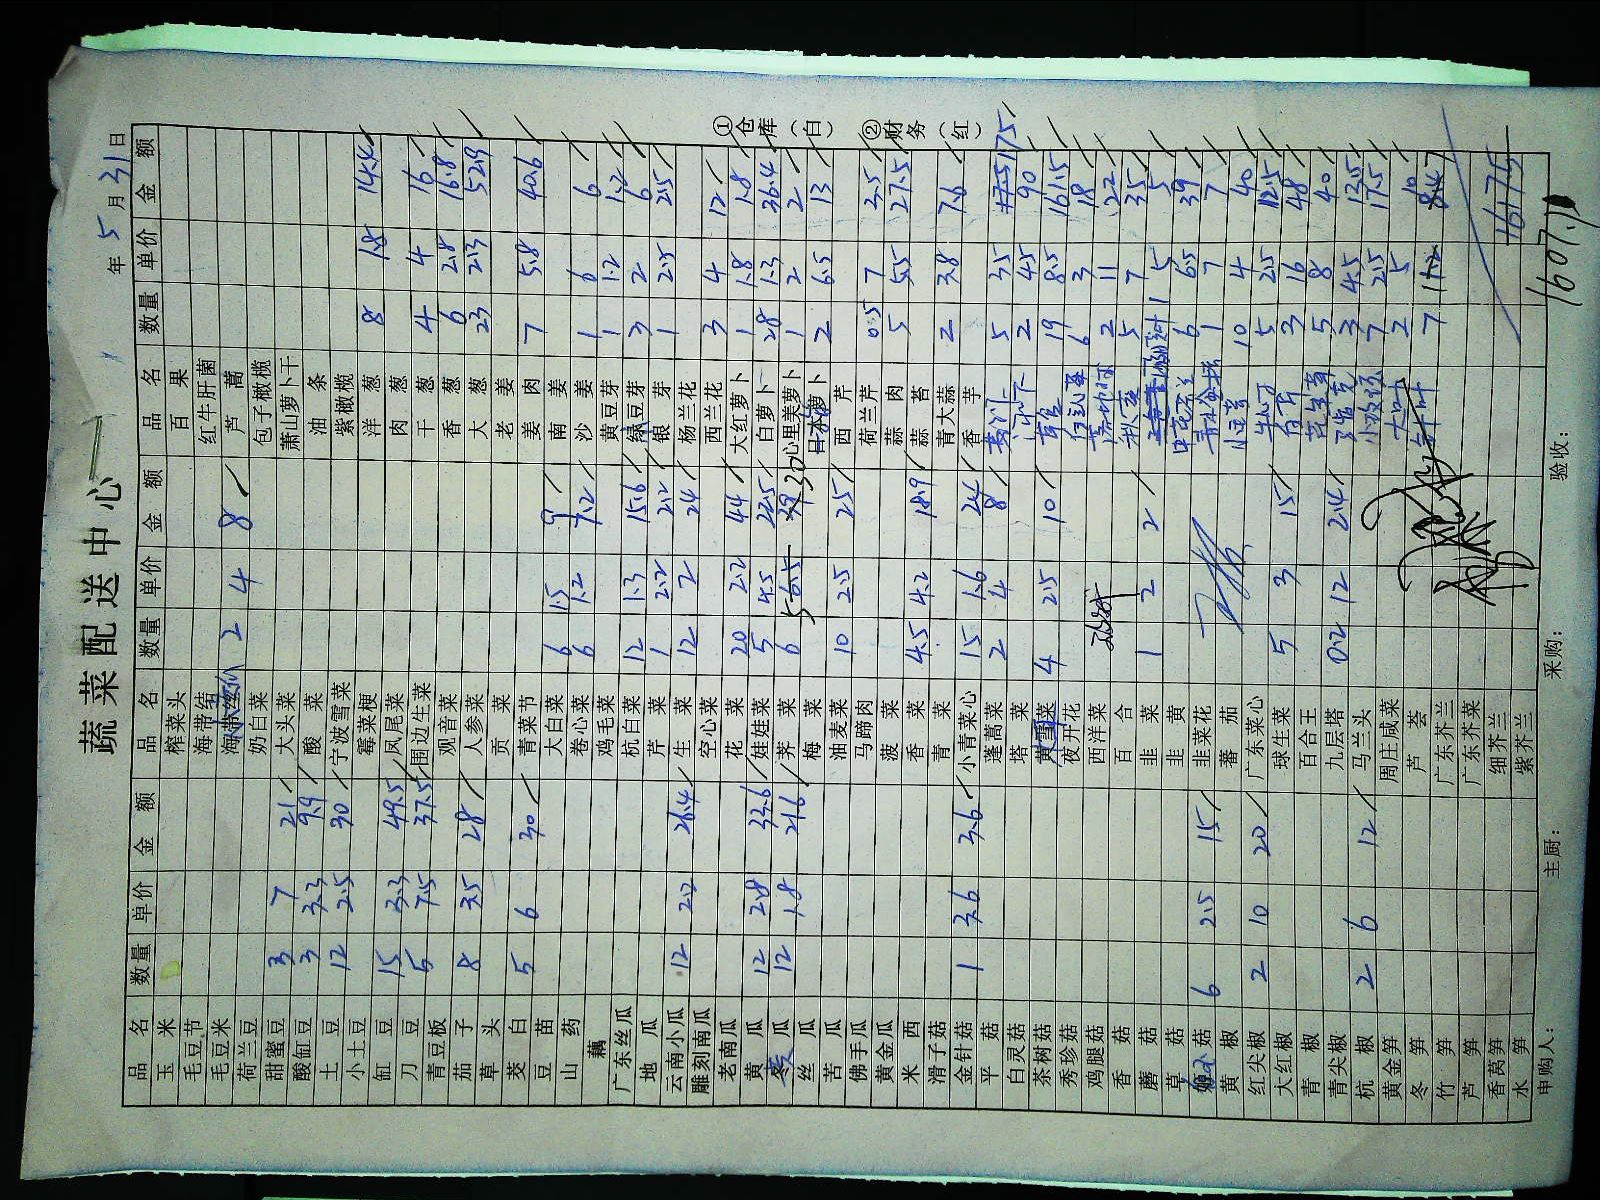 蔬菜配送中心
年 5 月 31 日
品名 数量 单价 金额 品名 数量 单价 金额 品名 数量 单价 金额
玉米 榨菜头 百果
毛豆节 海带结 红牛肝菌
毛豆米 海带丝 2 4 8 芦蒿
荷兰豆 奶白菜 包子橄榄
甜蜜豆 3 7 21 大头菜 萧山萝卜干
酸缸豆 3 3.3 9.9 酸菜 油条
土豆 12 2.5 30 宁波雪菜 紫橄榄
小土豆 霉菜梗 洋葱 8 1.8 14.4
缸豆 15 3.3 49.5 凤尾菜 肉葱
刀豆 5 7.5 37.5 围边生菜 干葱 4 4 16
青豆板 观音菜 香葱 6 2.8 16.8
茄子 8 3.5 28 人参菜 大葱 23 2.3 52.9
草头 贡菜 老姜
茭白 5 6 30 青菜节 姜肉 7 5.8 40.6
豆苗 大白菜 6 1.5 9 南姜
山药 卷心菜 6 1.2 7.2 沙姜 1 6 6
藕 鸡毛菜 黄豆芽 1 1.2 1.2
广东丝瓜 杭白菜 12 1.3 15.6 绿豆芽 3 2 6
地瓜 芹菜 1 2.2 2.2 银芽 1 2.5 2.5
云南小瓜 12 2.2 26.4 生菜 12 2 24 杨兰花
雕刻南瓜 空心菜 西兰花 3 4 12
老南瓜 花菜 20 2.2 44 大红萝卜 1 1.8 1.8
黄瓜 12 2.8 33.6 娃娃菜 5 4.5 22.5 白萝卜 28 1.3 36.4
冬瓜 12 1.8 21.6 荠菜 6 6.5 5 39 30 心里美萝卜 1 2 2
丝瓜 梅菜 日本萝卜 2 6.5 13
苦瓜 油麦菜 10 2.5 25 西芹
佛手瓜 马蹄肉 荷兰芹 0.5 7 3.5
黄金瓜 菠菜 蒜肉 5 5.5 27.5
米西 香菜 4.5 4.2 18.9 蒜苔
滑子菇 青菜 青大蒜 2 3.8 7.6
金针菇 1 3.6 3.6 小青菜心 15 1.6 24 香芋
平菇 蓬蒿菜 2 4 8 5 35 175
白灵菇 塔菜 2 45 90
茶树菇 黄雪菜 4 2.5 10 19 8.5 161.5
秀珍菇 夜开花 6 3 18
鸡腿菇 西洋菜 2 11 22
香菇 百合 秋葵 5 7 35
蘑菇 韭菜 1 2 2 1 5 5
草菇 韭黄 6 6.5 39
菇 6 2.5 15 韭菜花 1 7 7
黄椒 蕃茄 10 4 40
红尖椒 2 10 20 广东菜心 5 2.5 12.5
大红椒 球生菜 5 3 15 3 16 48
青椒 百合王 5 8 40
青尖椒 九层塔 0.2 12 2.4 3 4.5 13.5
杭椒 2 6 12 马兰头 7 2.5 17.5
黄金笋 周庄咸菜 2 5 10
冬笋 芦荟 7 1.2 8.4
竹笋 广东芥兰
芦笋 广东芥菜
香莴笋 细芥兰
水笋 紫芥兰 1617.5
申购人： 主厨： 采购： 验收： 1607.1
①仓库（白） ②财务（红）